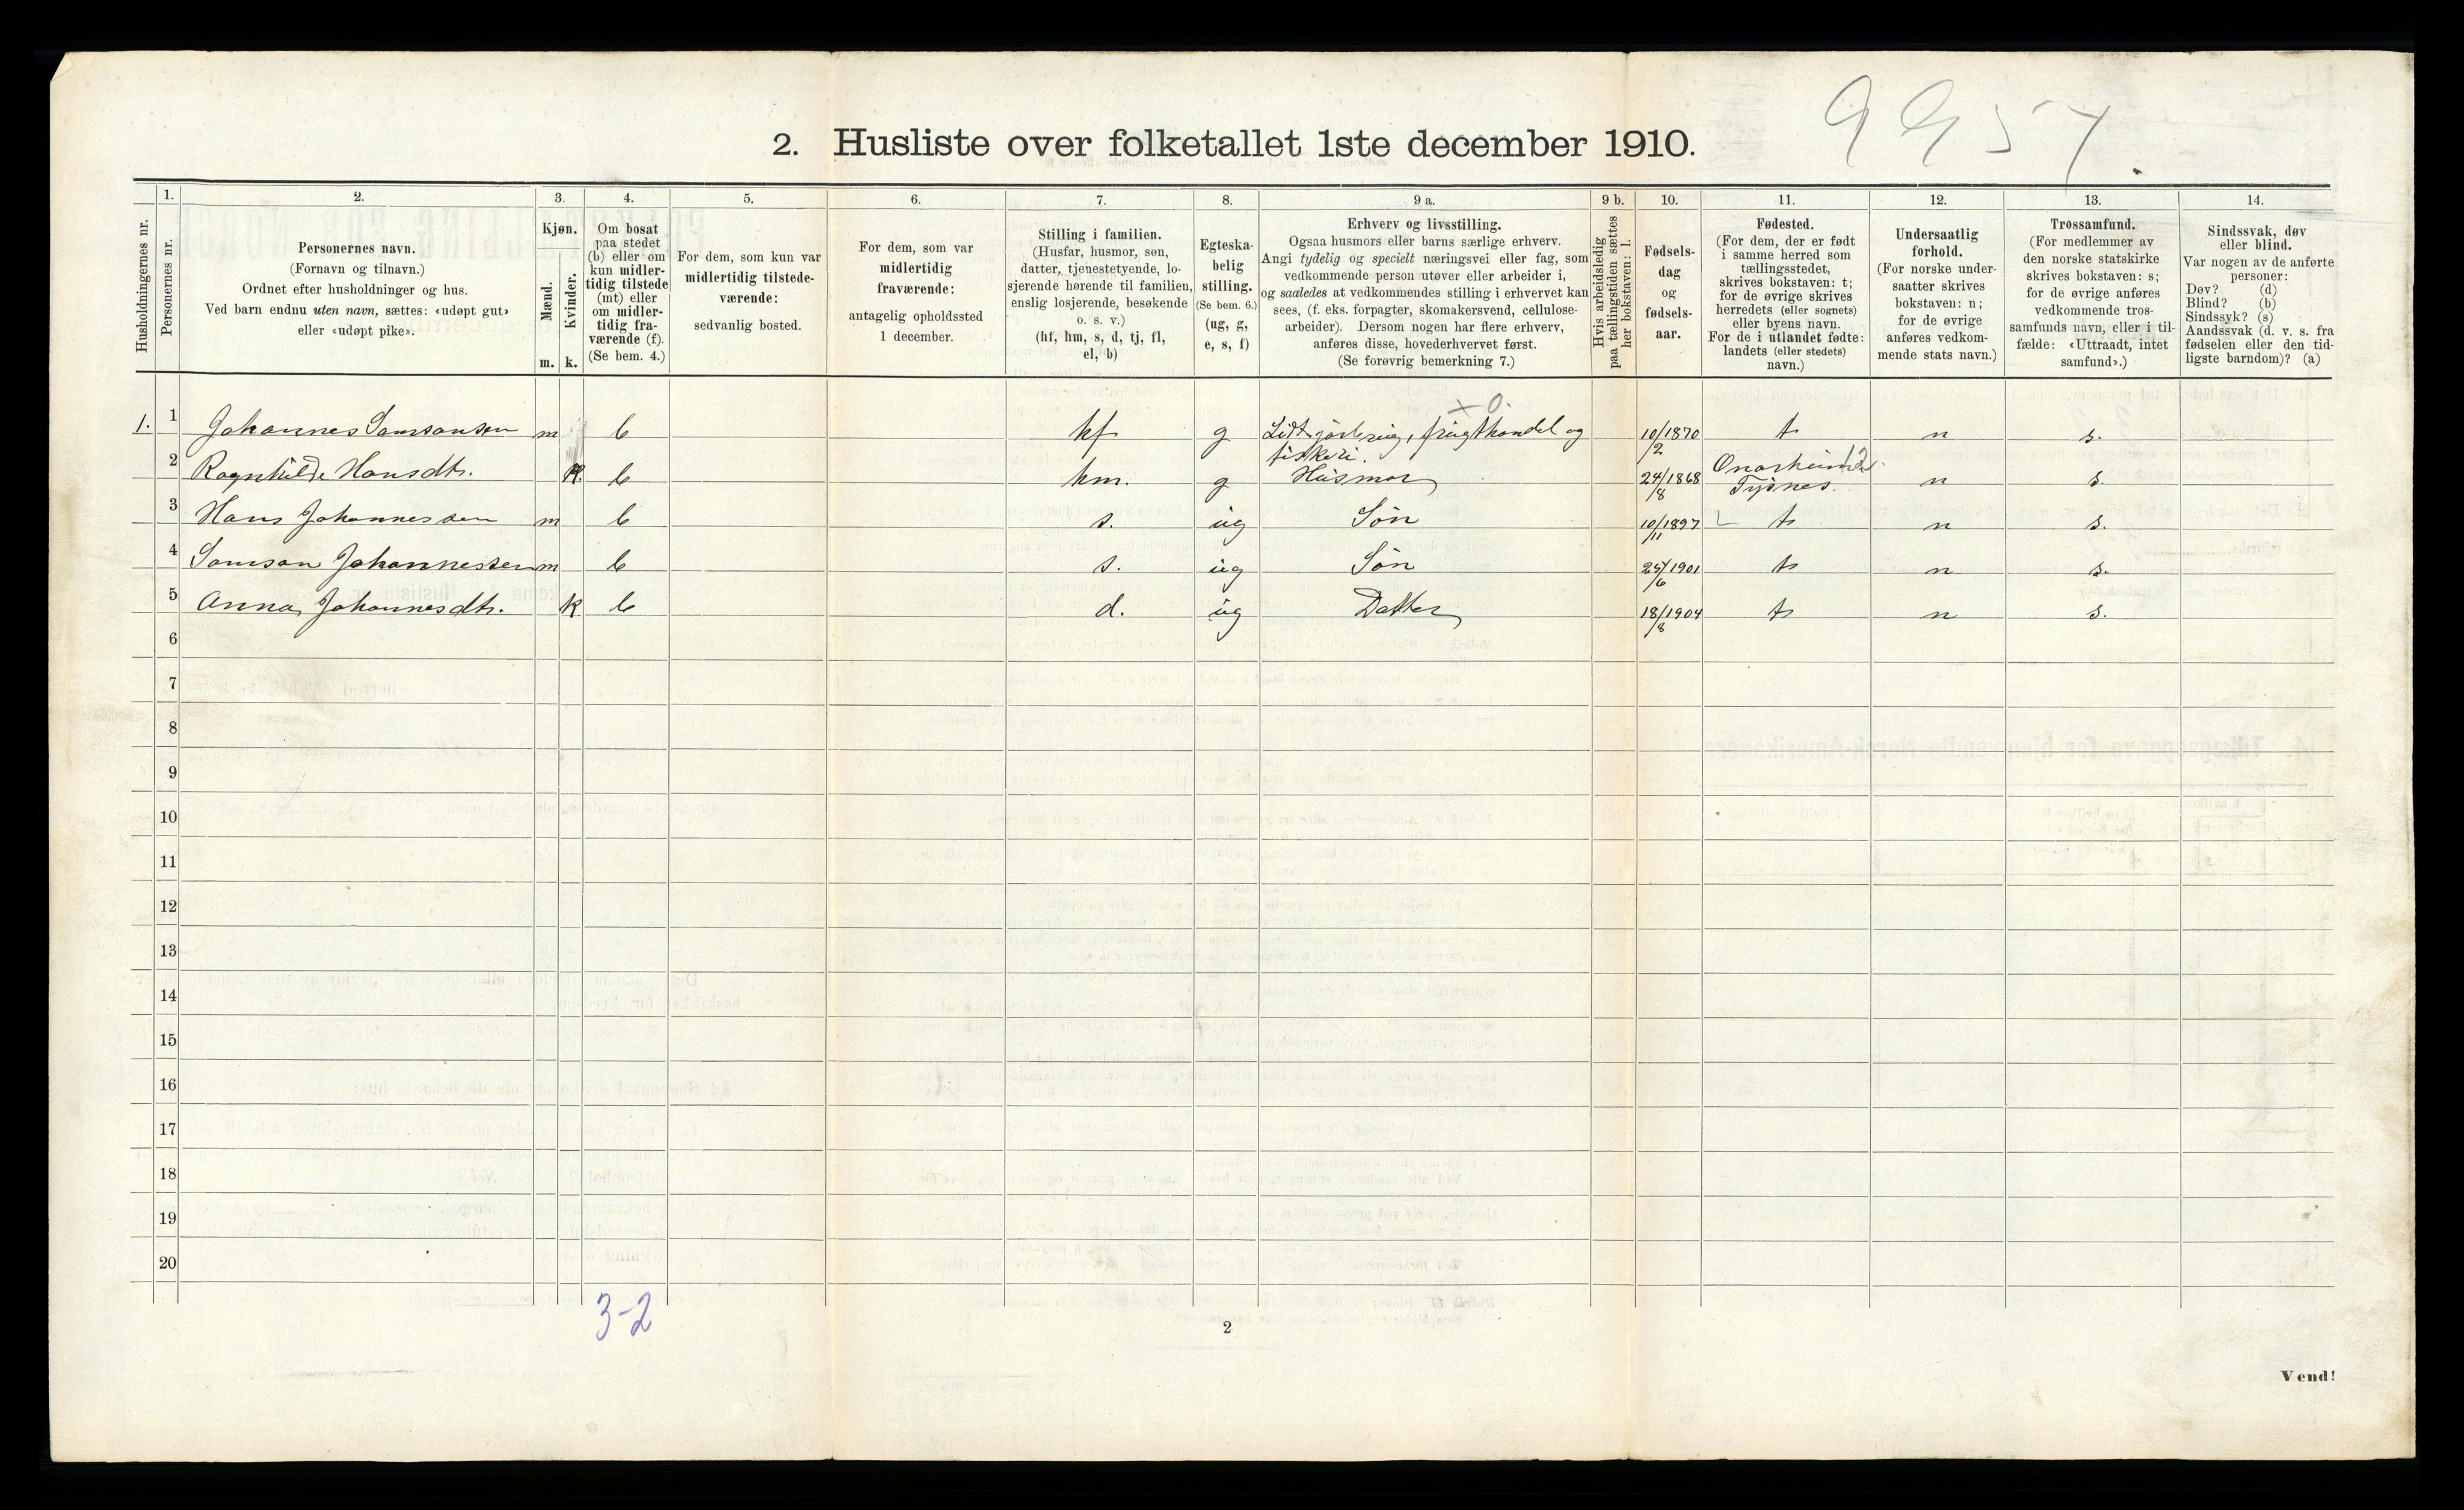 2. Husliste over folketallet 1ste december 1910.
Husholdningernes nr.
1.
Personernes nr.
2.
Personernes navn.
(Fornavn og tilnavn.)
Ordnet efter husholdninger og hus.
Ved barn endnu uten navn, sættes: «udøpt gut»
eller «udøpt pike».
3.
Kjøn.
Mænd.
Kvinder.
m. k.
4.
Om bosat
paa stedet
(b) eller om
kun midler-
tidig tilstede
(mt) eller
om midler-
tidig fra-
værende (f).
(Se bem. 4.)
5.
For dem, som kun var
midlertidig tilstede-
værende:
sedvanlig bosted.
6.
For dem, som var
midlertidig
fraværende:
antagelig opholdssted
1 december.
7.
Stilling i familien.
(Husfar, husmor, søn,
datter, tjenestetyende, lo-
sjerende hørende til familien,
enslig losjerende, besøkende
o. s. v.)
(hf, hm, s, d, tj, fl,
el, b)
8.
Egteska-
belig
stilling.
(Se bem. 6.)
(ug, g,
e, s, f)
9 a.
Erhverv og livsstilling.
Ogsaa husmors eller barns særlige erhverv.
Angi tydelig og specielt næringsvei eller fag, som
vedkommende person utøver eller arbeider i,
og saaledes at vedkommendes stilling i erhvervet kan
sees, (f. eks. forpagter, skomakersvend, cellulose-
arbeider). Dersom nogen har flere erhverv,
anføres disse, hovederhvervet først.
(Se forøvrig bemerkning 7.)
9 b.
Hvis arbeidsledig
paa tællingstiden sættes
her bokstaven: l.
10.
Fødsels-
dag
og
fødsels-
aar.
11.
Fødested.
(For dem, der er født
i samme herred som
tællingsstedet,
skrives bokstaven: t;
for de øvrige skrives
herredets (eller sognets)
eller byens navn.
For de i utlandet fødte:
landets (eller stedets)
navn.)
12.
Undersaatlig
forhold.
(For norske under-
saatter skrives
bokstaven: n;
for de øvrige
anføres vedkom-
mende stats navn.)
13.
Trossamfund.
(For medlemmer av
den norske statskirke
skrives bokstaven: s;
for de øvrige anføres
vedkommende tros-
samfunds navn, eller i til-
fælde: «Uttraadt, intet
samfund».)
14.
Sindssvak, døv
eller blind.
Var nogen av de anførte
personer:
Døv? (d)
Blind? (b)
Sindssyk? (s)
Aandssvak (d. v. s. fra
fødselen eller den tid-
ligste barndom)? (a)
x 0.
1. 1 Johannes Samsonsen m b hf g Lidt jordbrug, frugthandel og fiskeri. 10/2 1870 t n s.
2 Ragnhilde Hansdtr. k. b hm. g Husmor 24/8 1868 Onarheim Tysnes. 12 n s.
3 Hans Johannessen m b s. ug Søn 10/11 1897 t n s.
4 Samson Johannessen m b s. ug Søn 6 1901 t n s.
5 Anna Johannesdtr. k b d. ug Datter 18/8 1904 t n s.
6
7
8
9
10
11
12
13
14
15
16
17
18
19
20
3-2
2
Vend!